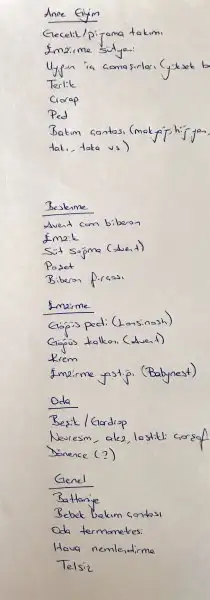 Anne Giyim
Gecelik/pijama takımı
Emzirme Sütyeni
Uygun iç çamaşırları (yüksek b
Terlik
Çorap
Ped
Bakım çantası (makyaj, hijyen,
takı, toka vs)
Beslenme
Avent cam biberon
Emzik
Süt Sağma (Avent)
Poşet
Biberon fırçası
Emzirme
Göğüs pedi (Lansinosh)
Göğüs kalkanı (Avent)
Krem
Emzirme yastığı (Babynest)
Oda
Beşik / Gardrop
Nevresim, alez, lastikli çarşaf
Dönence (?)
Genel
Battaniye
Bebek bakım çantası
Oda termometresi
Hava nemlendirme
Telsiz